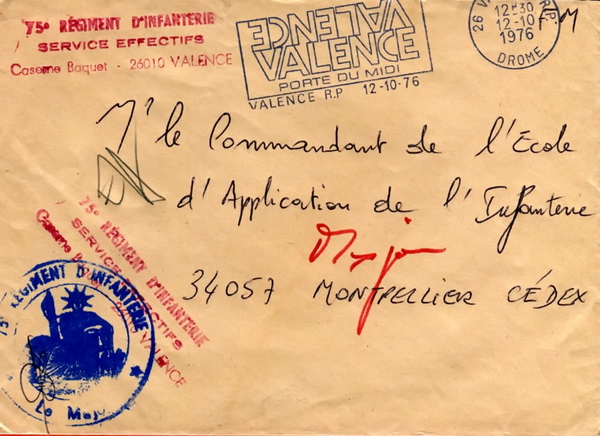 75e RÉGIMENT D'INFANTERIE
SERVICE EFFECTIFS
Caserne Baquet - 26010 VALENCE
VALENCE
VALENCE
PORTE DU MIDI
VALENCE R.P 12-10-76
26 V R.P.
12H30
12-10
1976
DROME
F M
Mr le Commandant de l'École
d'Application de l'Infanterie
Major
34057 MONTPELLIER CÉDEX
75e RÉGIMENT D'INFANTERIE
SERVICE EFFECTIFS
Caserne VALENCE
75e RÉGIMENT D'INFANTERIE
Le Major